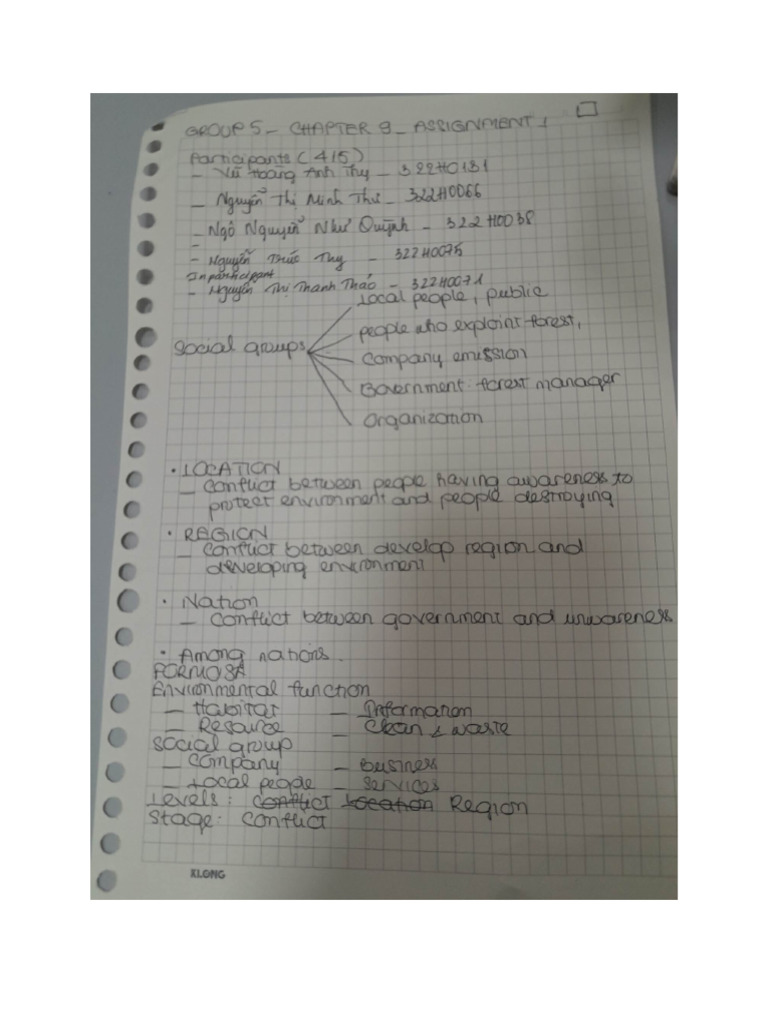 GROUP 5 - CHAPTER 9 - ASSIGNMENT 1
Participants (4/5)
- Vũ Hoàng Anh Thy - 322H0131
- Nguyễn Thị Minh Thư - 322H0066
- Ngô Nguyễn Như Quỳnh - 322H0038
-
- Nguyễn Trúc Thy - 322H0075
In participant
- Nguyễn Thị Thanh Thảo - 322H0071
Social groups
Local people, public
people who exploint forest,
Company emission
Government: forest manager
Organization
• LOCATION
- Conflict between people having awareness to
protect environment and people destroying
• REGION
- Conflict between develop region and
developing environment
• Nation
- Conflict between government and unwareness
• Among nations.
FORMOSA
Environmental function
- Habitat - Information
- Resource - Clean & waste
Social group
- Company - Business
- Local people - Services
Levels: Conflict Location Region
Stage: Conflict
KLONG